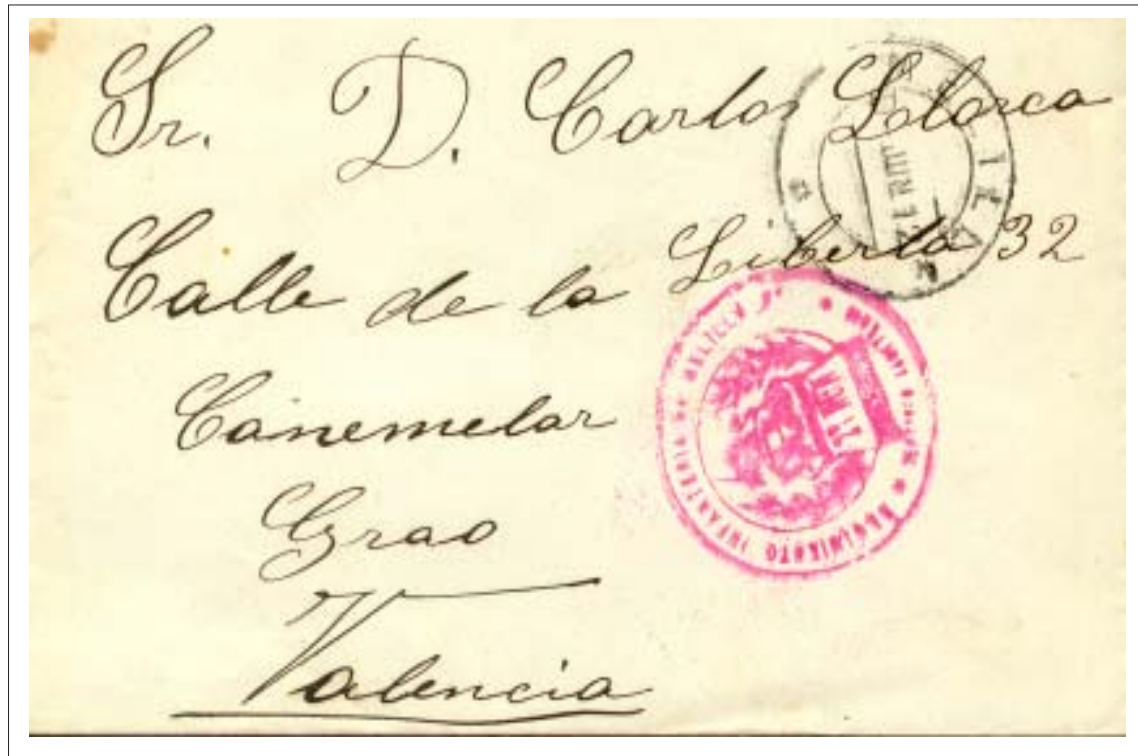 Sr. D. Carlos Llorca
Calle de la Liberta 32
Canemelar
Grao
Valencia
REGIMIENTO INFANTERIA DE MELILLA